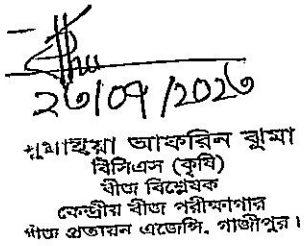 ২৩/০৭/২০২৩
সুমাইয়া আফরিন ঝুমা
বিসিএস (কৃষি)
বীজ বিশ্লেষক
কেন্দ্রীয় বীজ পরীক্ষাগার
বীজ প্রত্যয়ন এজেন্সি, গাজীপুর।